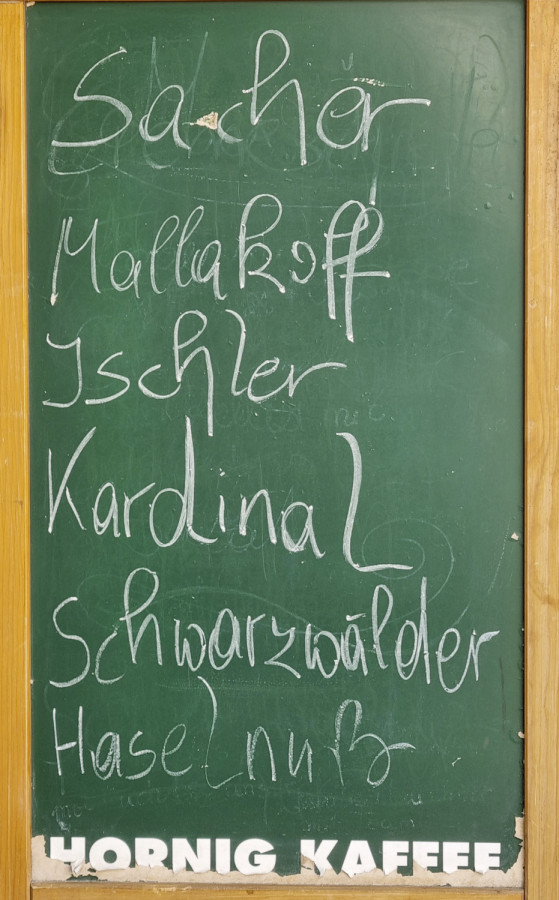 Sacher
Mallakoff
Ischler
Kardinal
Schwarzwälder
Haselnuß
HORNIG KAFFEE